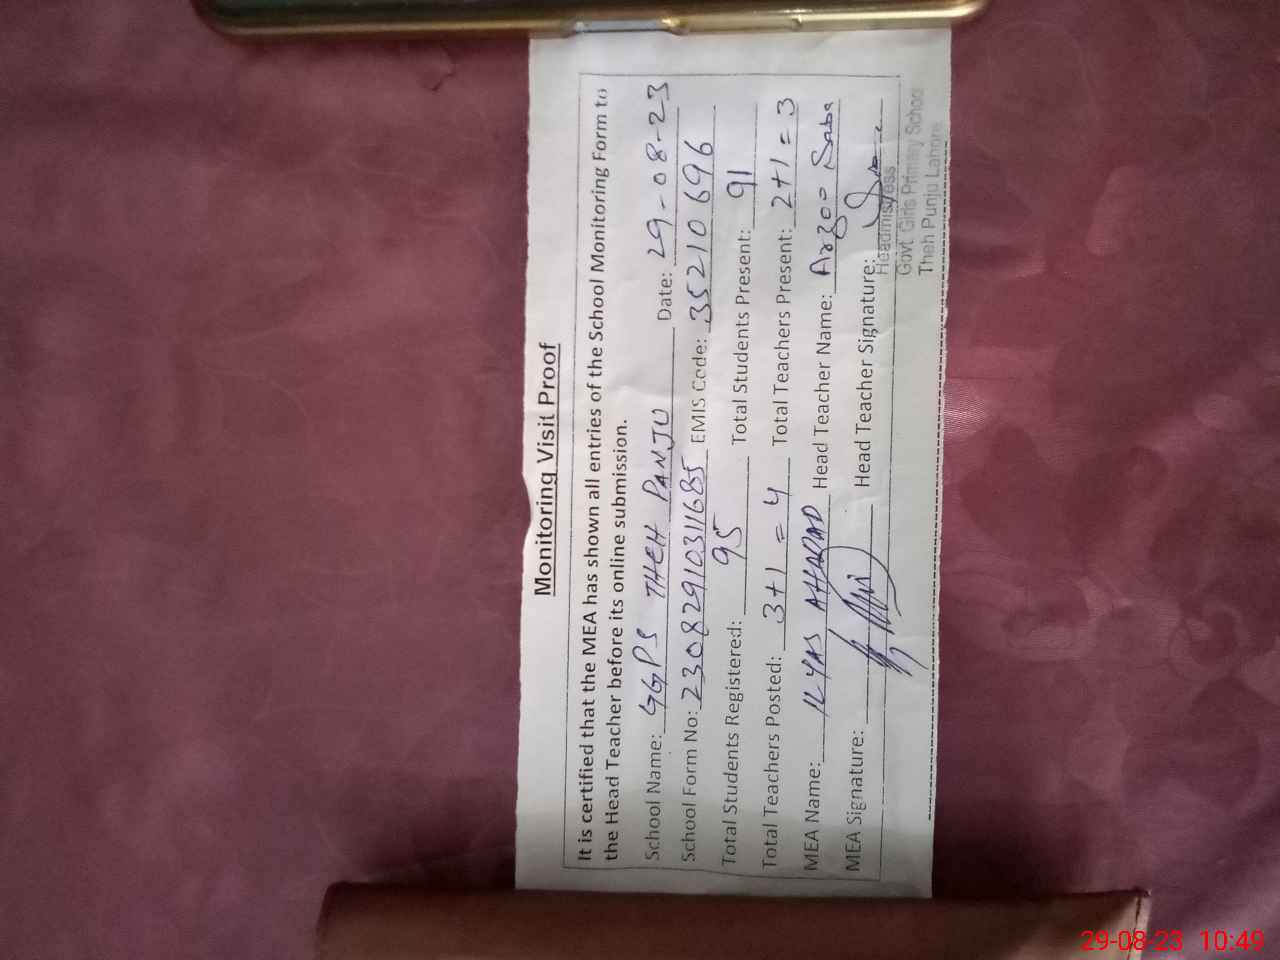 Monitoring Visit Proof
It is certified that the MEA has shown all entries of the School Monitoring Form to
the Head Teacher before its online submission.
School Name: GGPS THEH PANJU Date: 29-08-23
School Form No: 23082910311685 EMIS Code: 35210696
Total Students Registered: 95 Total Students Present: 91
Total Teachers Posted: 3+1=4 Total Teachers Present: 2+1=3
MEA Name: ILYAS AHMAD Head Teacher Name: Arzoo Saba
MEA Signature: Head Teacher Signature:
Headmistress
Govt. Girls Primary School
Theh Punju Lahore
29-08-23 10:49